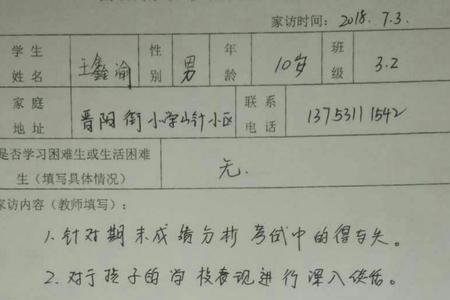 家访时间：2018.7.3.
学生姓名 王鑫渝 性别 男 年龄 10岁 班级 3.2
家庭地址 晋阳街小学山针小区 联系电话 13753111542
是否学习困难生或生活困难生（填写具体情况） 无.
家访内容（教师填写）：
1.针对期末成绩分析考试中的得与失。
2.对于孩子的学校表现进行深入